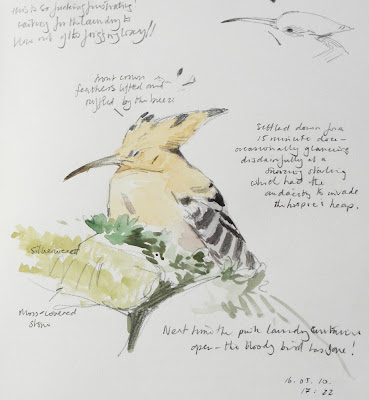 this is so fucking frustrating!
waiting for the laundry to
blow out of its frigging way!!
front crown
feathers lifted and
ruffled by the breeze
Settled down for a
15 minute doze -
occasionally glancing
disdainfully at a
starling
which had the
audacity to invade
the heap.
Silverweed
Moss-covered
stone
Next time the pink laundry curtains
open - the bloody bird has gone!
16.05.10.
17:22